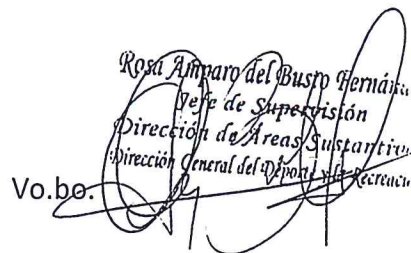 Rosa Amparo del Busto Hernán
Jefe de Supervisión
Dirección de Áreas Sustantiv
Dirección General del Deporte y la Recreac
Vo.bo.